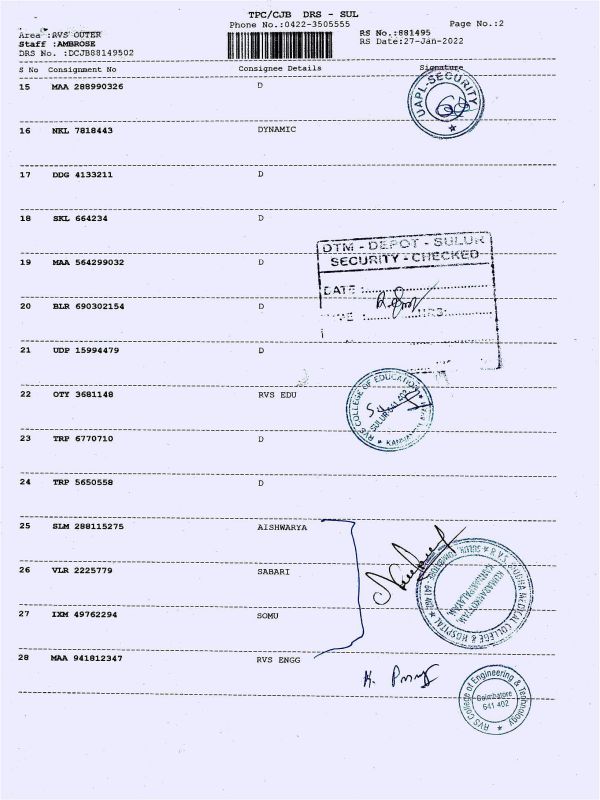 TPC/CJB DRS - SUL
Phone No.:0422-3505555
Page No.:2
Area :RVS OUTER
RS No.:881495
Staff :AMBROSE
RS Date:27-Jan-2022
DRS No. :DCJB88149502
S No Consignment No Consignee Details Signature
15 MAA 288990326 D
UAPL-SECURITY
16 NKL 7818443 DYNAMIC
17 DDG 4133211 D
18 SKL 664234 D
DTM - DEPOT - SULUR
SECURITY - CHECKED
19 MAA 564299032 D
DATE :
20 BLR 690302154 D
HRS:
21 UDP 15994479 D
22 OTY 3681148 RVS EDU
RVS COLLEGE OF EDUCATION
SULUR 641 402
23 TRP 6770710 D
24 TRP 5650558 D
25 SLM 288115275 AISHWARYA
26 VLR 2225779 SABARI
R.V.S. MEDICAL COLLEGE & HOSPITAL
27 IXM 49762294 SOMU
28 MAA 941812347 RVS ENGG
RVS College of Engineering & Technology
Coimbatore
641 402